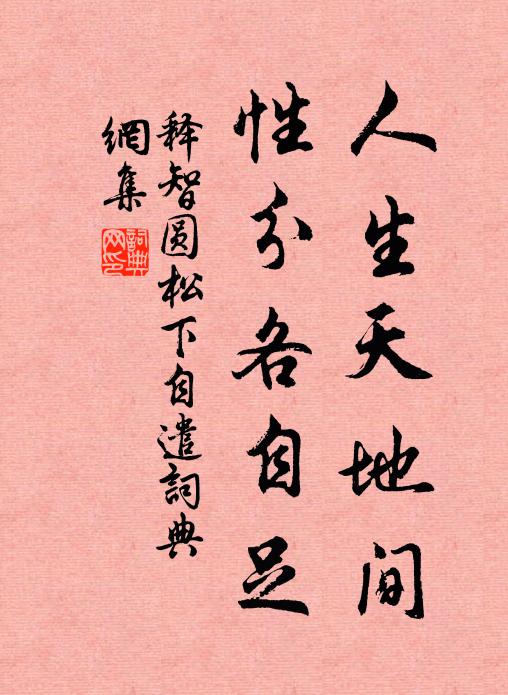 人生天地间
性分各自足
释智圆松下自遣詞典
網集
詞典網印